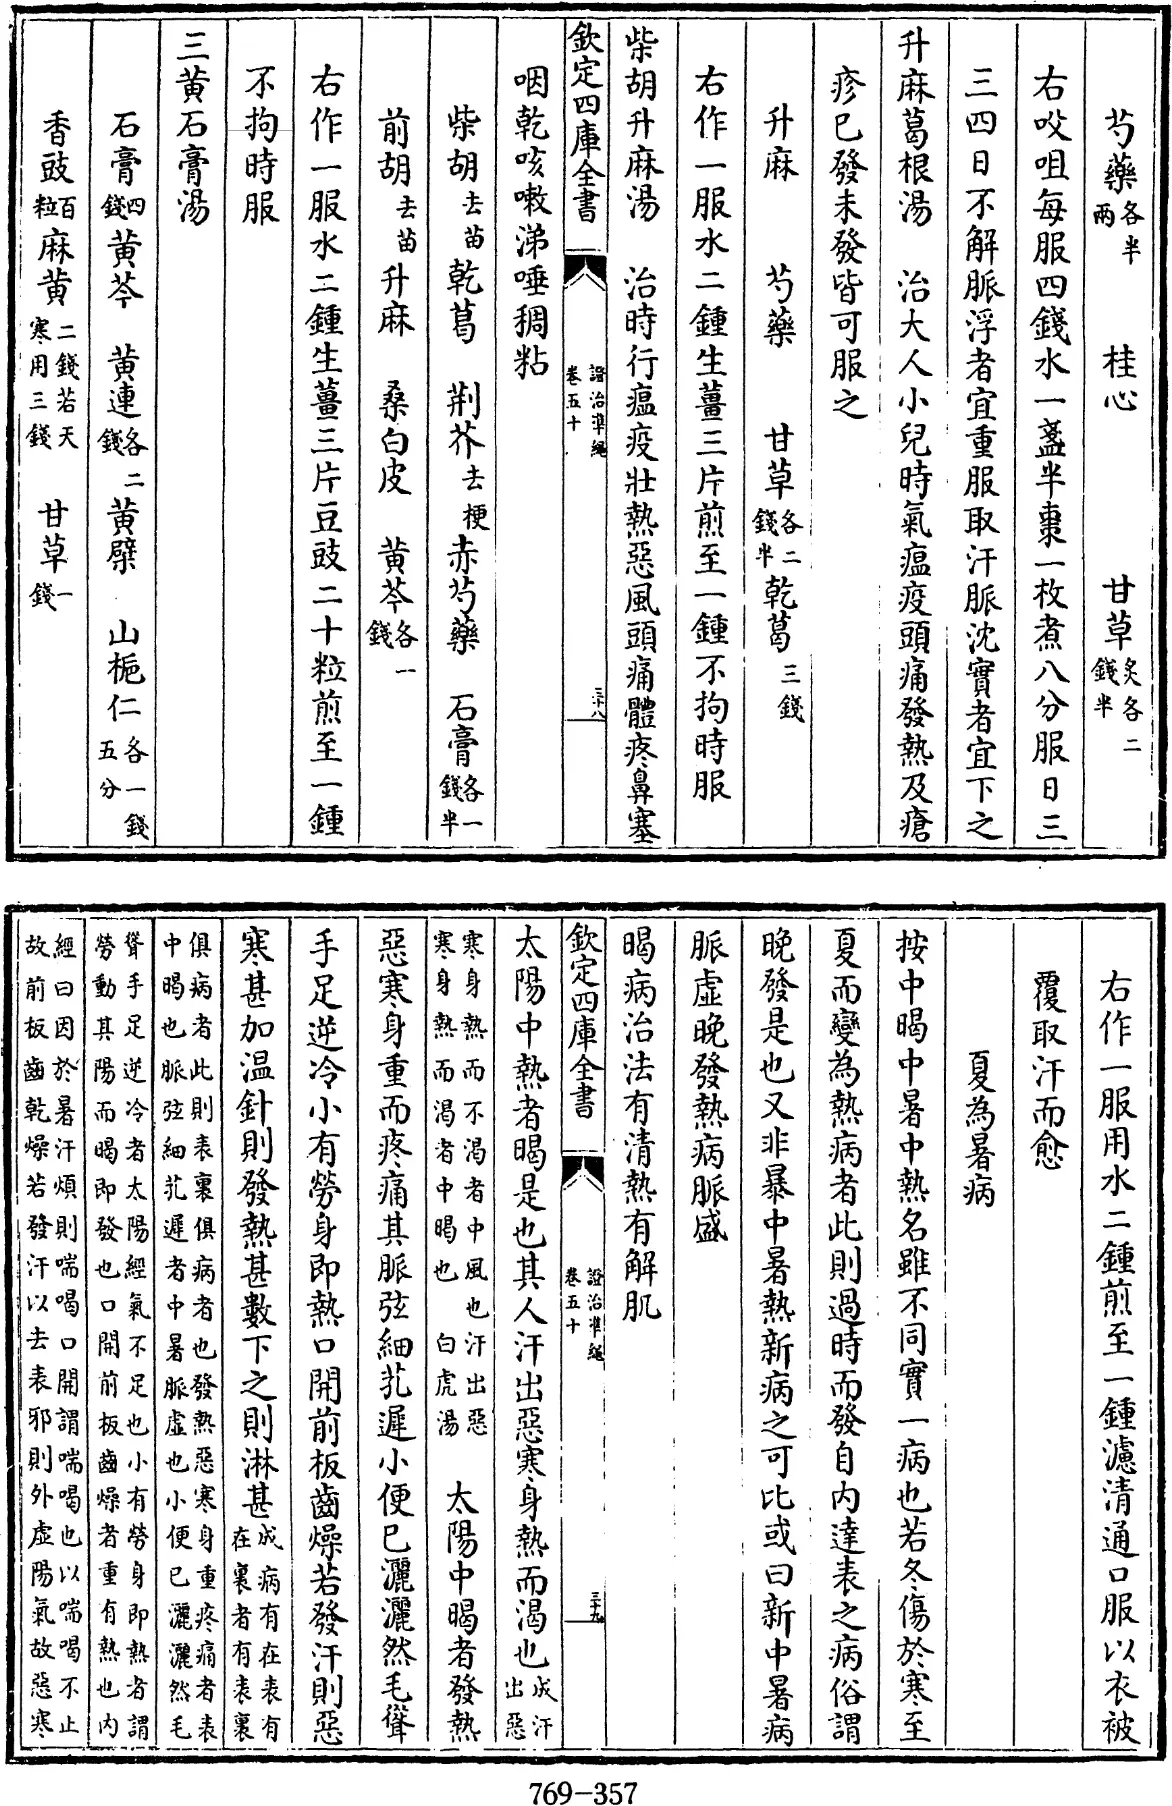 芍藥各半兩 桂心 甘草炙各二錢半
右㕮咀每服四錢水一盞半棗一枚煮八分服日三
三四日不解脈浮者宜重服取汗脈沈實者宜下之
升麻葛根湯 治大人小兒時氣瘟疫頭痛發熱及瘡
疹已發未發皆可服之
升麻 芍藥 甘草各二錢半乾葛三錢
右作一服水二鍾生薑三片煎至一鍾不拘時服
柴胡升麻湯 治時行瘟疫壯熱惡風頭痛體疼鼻塞
欽定四庫全書 證治準繩卷五十 三十八
咽乾咳嗽涕唾稠粘
柴胡去苗乾葛 荆芥去梗赤芍藥 石膏各一錢半
前胡去苗升麻 桑白皮 黄芩各一錢
右作一服水二鍾生薑三片豆豉二十粒煎至一鍾
不拘時服
三黄石膏湯
石膏四錢黄芩 黄連各二錢黄檗 山梔仁各一錢五分
香豉百粒麻黄二錢若天寒用三錢 甘草一錢
右作一服用水二鍾煎至一鍾濾清通口服以衣被
覆取汗而愈
夏為暑病
按中暍中暑中熱名雖不同實一病也若冬傷於寒至
夏而變為熱病者此則過時而發自内達表之病俗謂
晚發是也又非暴中暑熱新病之可比或曰新中暑病
脈虛晚發熱病脈盛
暍病治法有清熱有解肌
欽定四庫全書 證治準繩卷五十 三十九
太陽中熱者暍是也其人汗出惡寒身熱而渴也成汗出惡
寒身熱而不渴者中風也汗出惡寒身熱而渴者中暍也 白虎湯 太陽中暍者發熱
惡寒身重而疼痛其脈弦細芤遲小便已灑灑然毛聳
手足逆冷小有勞身即熱口開前板齒燥若發汗則惡
寒甚加温針則發熱甚數下之則淋甚成病有在表有在裏者有表裏
俱病者此則表裏俱病者也發熱惡寒身重疼痛者表中暍也脈弦細芤遲者中暑脈虛也小便已灑灑然毛
聳手足逆冷者太陽經氣不足也小有勞身即熱者謂勞動其陽而暍即發也口開前板齒燥者重有熱也内
經曰因於暑汗煩則喘喝口開謂喘喝也以喘喝不止故前板齒乾燥若發汗以去表邪則外虛陽氣故惡寒
769-357